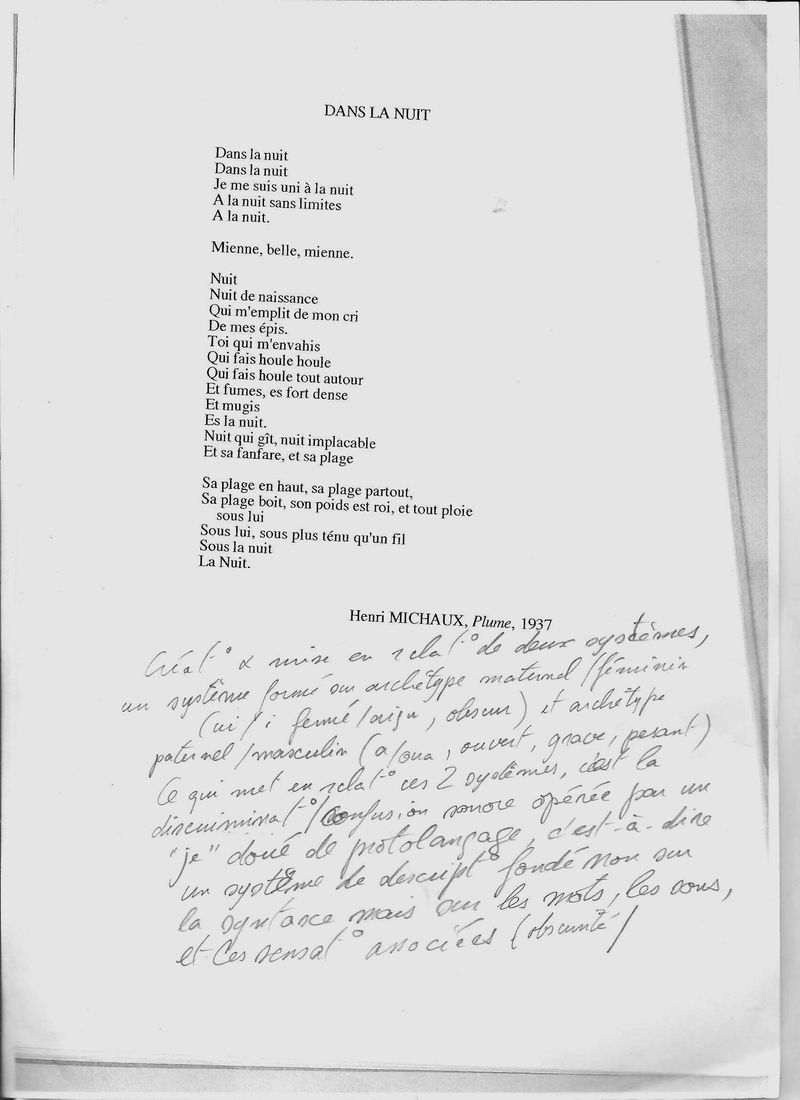 DANS LA NUIT
Dans la nuit
Dans la nuit
Je me suis uni à la nuit
A la nuit sans limites
A la nuit.
Mienne, belle, mienne.
Nuit
Nuit de naissance
Qui m'emplit de mon cri
De mes épis.
Toi qui m'envahis
Qui fais houle houle
Qui fais houle tout autour
Et fumes, es fort dense
Et mugis
Es la nuit.
Nuit qui gît, nuit implacable
Et sa fanfare, et sa plage
Sa plage en haut, sa plage partout,
Sa plage boit, son poids est roi, et tout ploie
sous lui
Sous lui, sous plus ténu qu'un fil
Sous la nuit
La Nuit.
Henri MICHAUX, Plume, 1937
Créat° & mise en relat° de deux systèmes,
un système formé sur archétype maternel/féminin
(ui/i fermé/aigu, obscur) et archétype
paternel/masculin (a/oua, ouvert, grave, pesant)
Ce qui met en relat° ces 2 systèmes, c'est la
discriminat°/confusion sonore opérée par un
"je" doué de protolangage, c'est-à-dire
un système de descript° fondé non sur
la syntaxe mais sur les mots, les sons,
et les sensat° associées (obscurité)